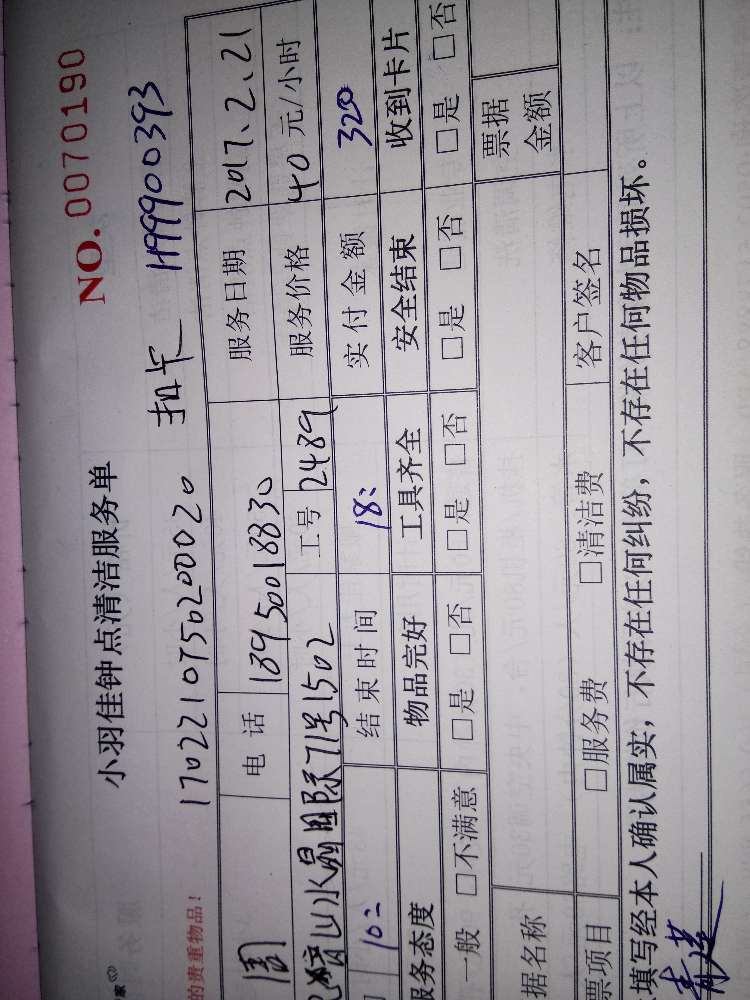 NO. 0070190
小羽佳钟点清洁服务单
170221075020002​0 扣卡 H999900393
的贵重物品！
周 电话 13950018830 服务日期 2017.2.21
山水晶国际71号1502 工号 2489 服务价格 40元/小时
10: 结束时间 18: 实付金额 320
服务态度 物品完好 工具齐全 安全结束 收到卡片
一般 □不满意 □是 □否 □是 □否 □是 □否 □是 □否
据名称 票据金额
票项目 □服务费 □清洁费 客户签名
填写经本人确认属实，不存在任何纠纷，不存在任何物品损坏。